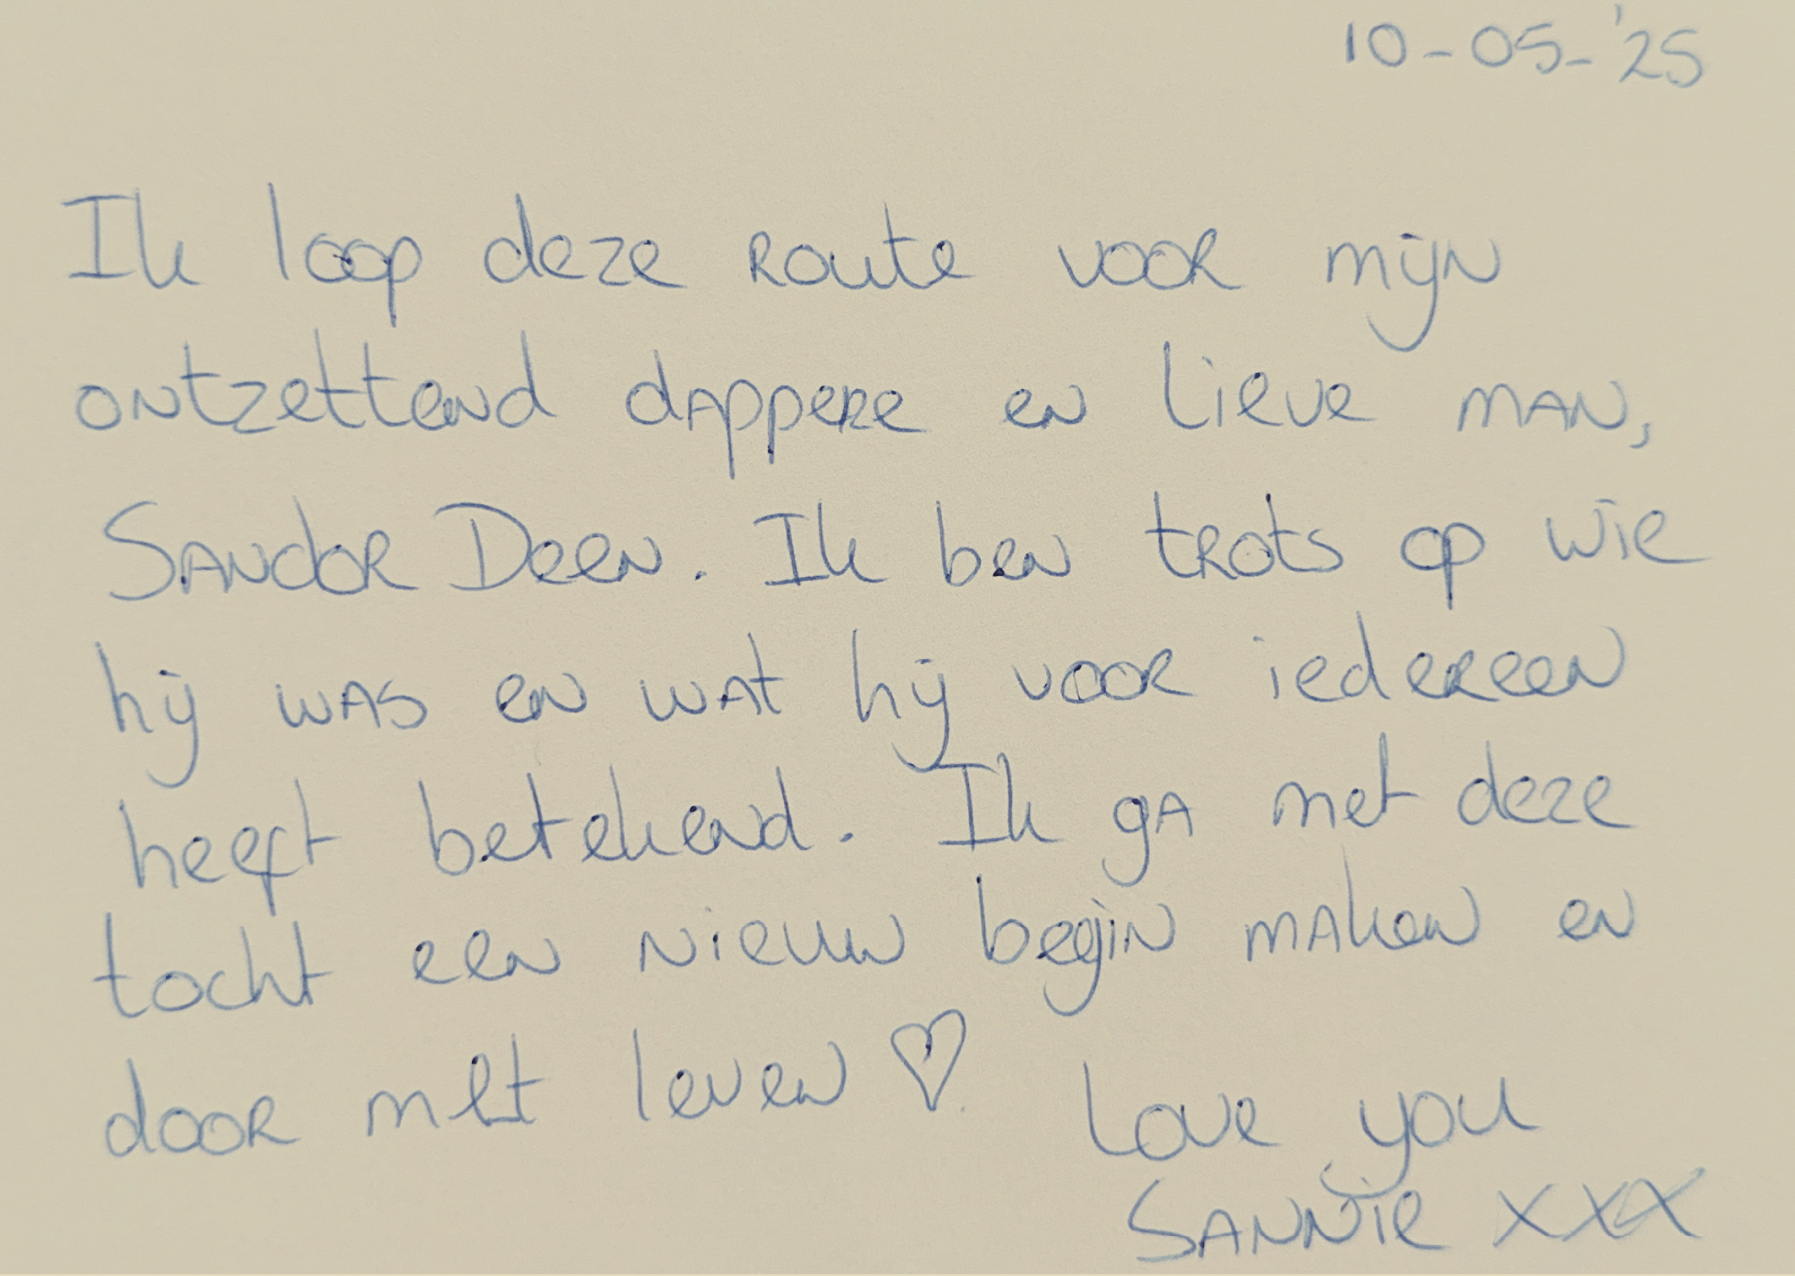 10-05-'25
Ik loop deze route voor mijn
ontzettend dappere en lieve man,
Sandor Deen. Ik ben trots op wie
hij was en wat hij voor iedereen
heeft betekend. Ik ga met deze
tocht een nieuw begin maken en
door met leven ♡
Love you
Sannie xxx